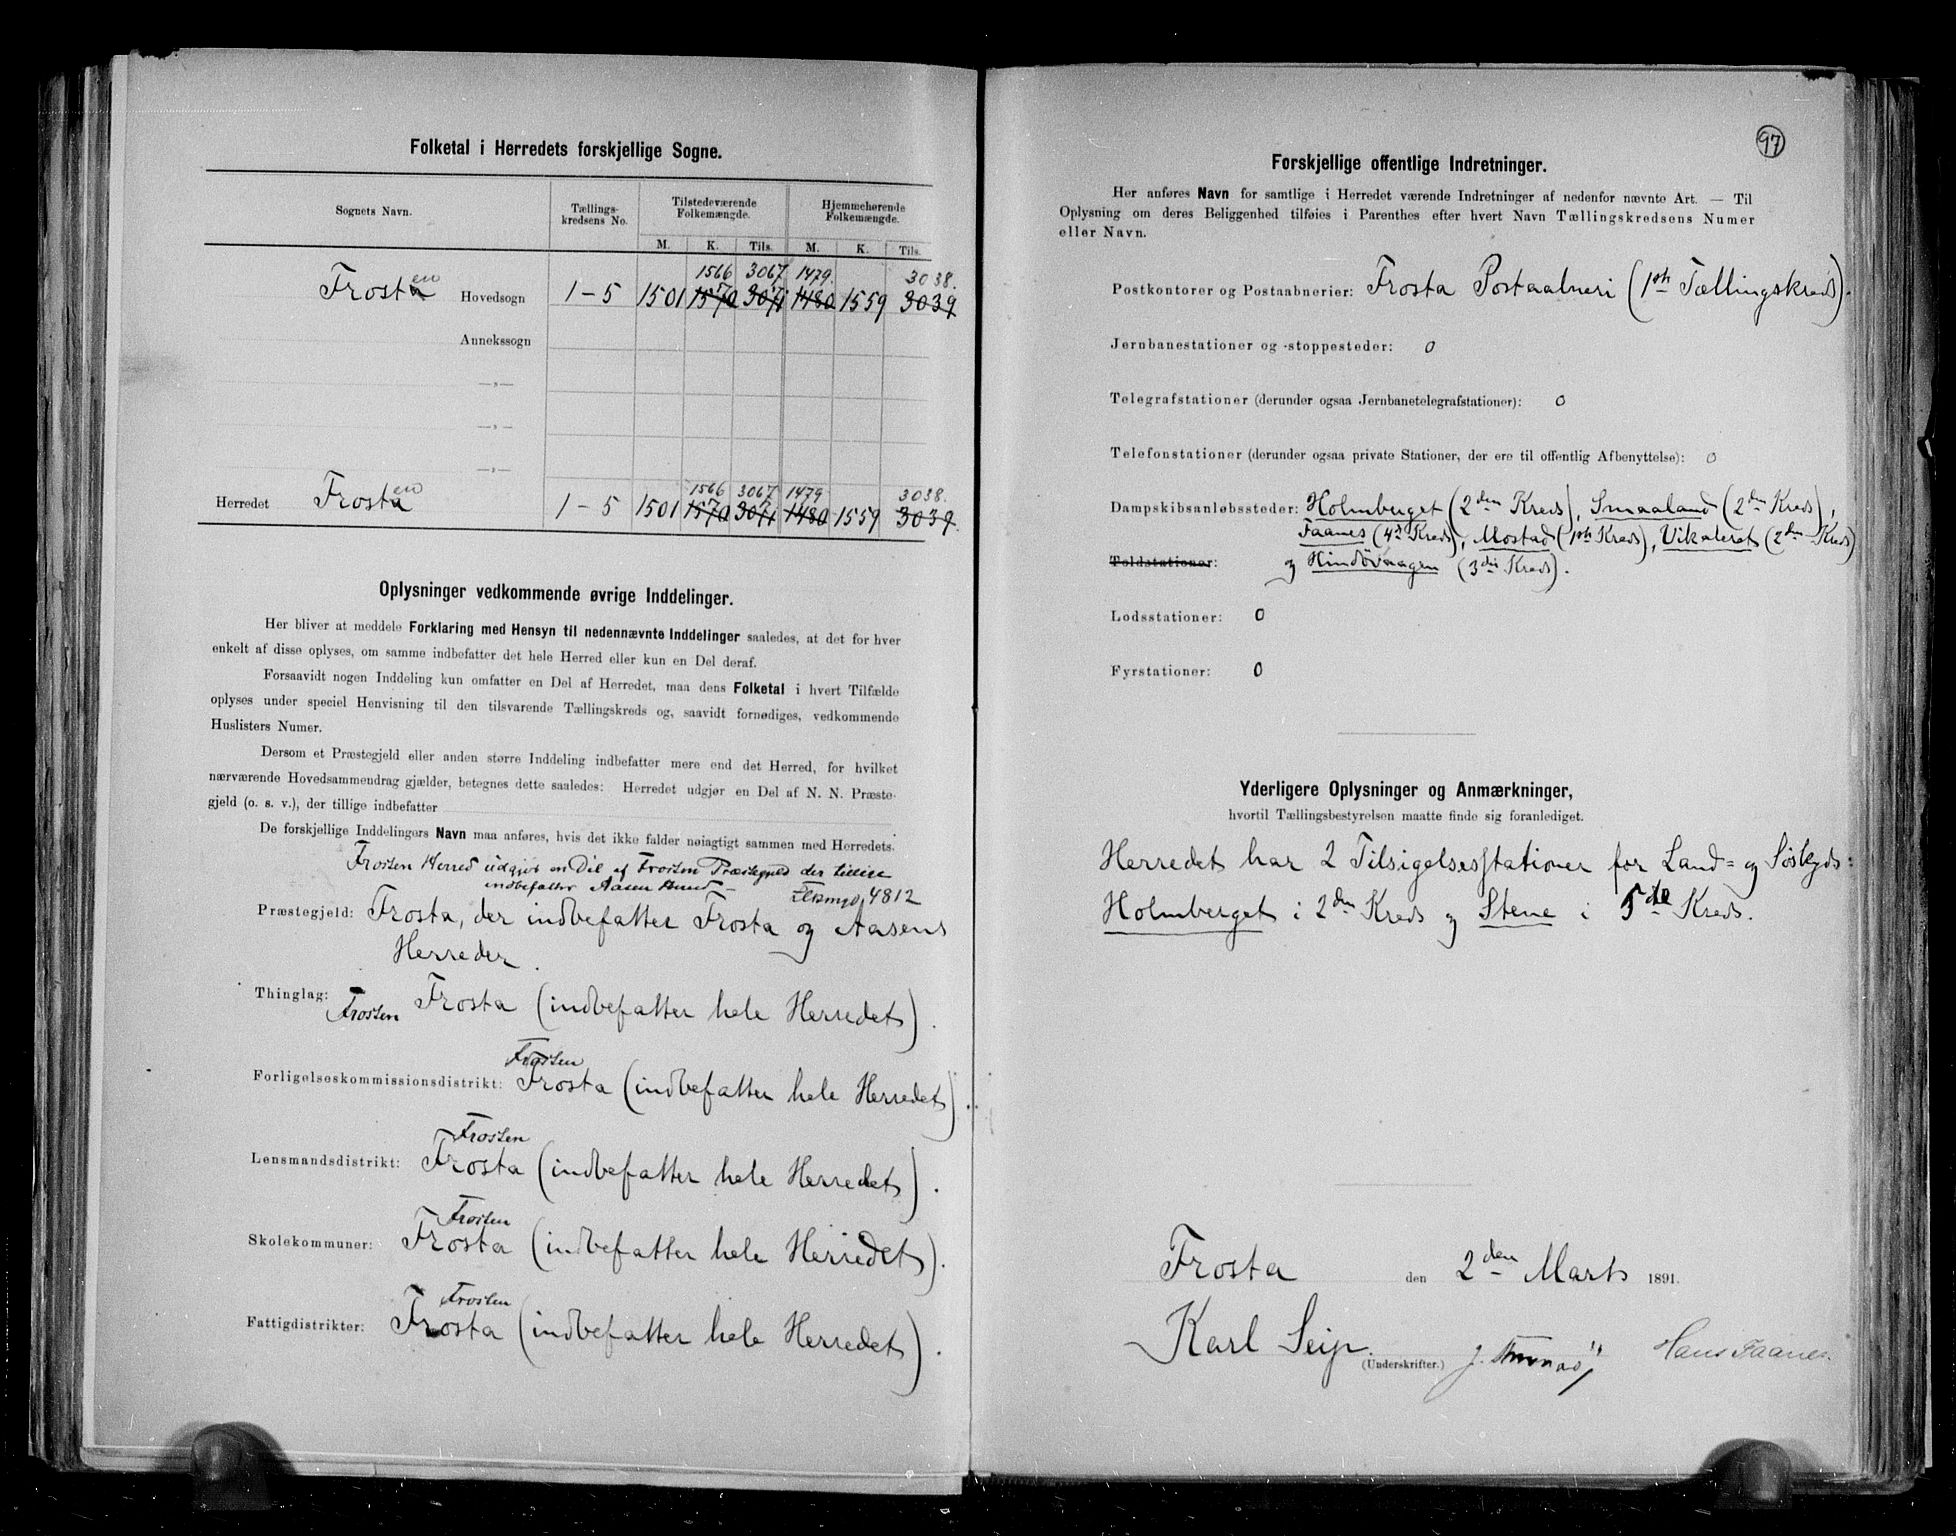 Folketal i Herredets forskjellige Sogne.
Sognets Navn. Tællings-kredsens No. Tilstedeværende Folkemængde. Hjemmehørende Folkemængde.
M. K. Tils. M. K. Tils.
en 1566 3067 1479 3038.
Frosta Hovedsogn 1-5 1501 1570 3071 1480 1559 3039
Annekssogn
—„—
—„—
—„—
en 1566 3067 1479 3038.
Herredet Frosta 1-5 1501 1570 3071 1480 1559 3039.
Oplysninger vedkommende øvrige Inddelinger.
Her bliver at meddele Forklaring med Hensyn til nedennævnte Inddelinger saaledes, at det for hver
enkelt af disse oplyses, om samme indbefatter det hele Herred eller kun en Del deraf.
Forsaavidt nogen Inddeling kun omfatter en Del af Herredet, maa dens Folketal i hvert Tilfælde
oplyses under speciel Henvisning til den tilsvarende Tællingskreds og, saavidt fornødiges, vedkommende
Huslisters Numer.
Dersom et Præstegjeld eller anden større Inddeling indbefatter mere end det Herred, for hvilket
nærværende Hovedsammendrag gjælder, betegnes dette saaledes: Herredet udgjør en Del af N. N. Præste-
gjeld (o. s. v.), der tillige indbefatter
De forskjellige Inddelingers Navn maa anføres, hvis det ikke falder nøiagtigt sammen med Herredets.
Frosten Herred udgjør en Del af Frosten Præstegjeld der tillige
indbefatter Aasen Herred — 4812
Præstegjeld: Frosta, der indbefatter Frosta og Aasens
Herreder.
Thinglag: Frosta (indbefatter hele Herredet).
Frosten
Frosten
Forligelseskommissionsdistrikt: Frosta (indbefatter hele Herredet).
Frosten
Lensmandsdistrikt: Frosta (indbefatter hele Herredet).
Frosten
Skolekommuner: Frosta (indbefatter hele Herredet).
Frosten
Fattigdistrikter: Frosta (indbefatter hele Herredet).
97
Forskjellige offentlige Indretninger.
Her anføres Navn for samtlige i Herredet værende Indretninger af nedenfor nævnte Art. — Til
Oplysning om deres Beliggenhed tilføies i Parenthes efter hvert Navn Tællingskredsens Numer
eller Navn.
Postkontorer og Postaabnerier: Frosta Postaabneri (1ste Tællingskreds).
Jernbanestationer og -stoppesteder: 0
Telegrafstationer (derunder ogsaa Jernbanetelegrafstationer): 0
Telefonstationer (derunder ogsaa private Stationer, der ere til offentlig Afbenyttelse): 0
Dampskibsanløbssteder: Holmberget (2den Kreds), Smaaland (2den Kreds),
Faanes (4de Kreds), Mostad (1ste Kreds), Vikaleret (2den Kreds)
Toldstationer: og Hindövaagen (3die Kreds).
Lodsstationer: 0
Fyrstationer: 0
Yderligere Oplysninger og Anmærkninger,
hvortil Tællingsbestyrelsen maatte finde sig foranlediget.
Herredet har 2 Tilsigelsesstationer for Land- og Söskyds:
Holmberget i 2den Kreds og Stene i 5te Kreds.
Frosta den 2den Marts 1891.
Karl Seip. (Underskrifter.) Hans Faanes.